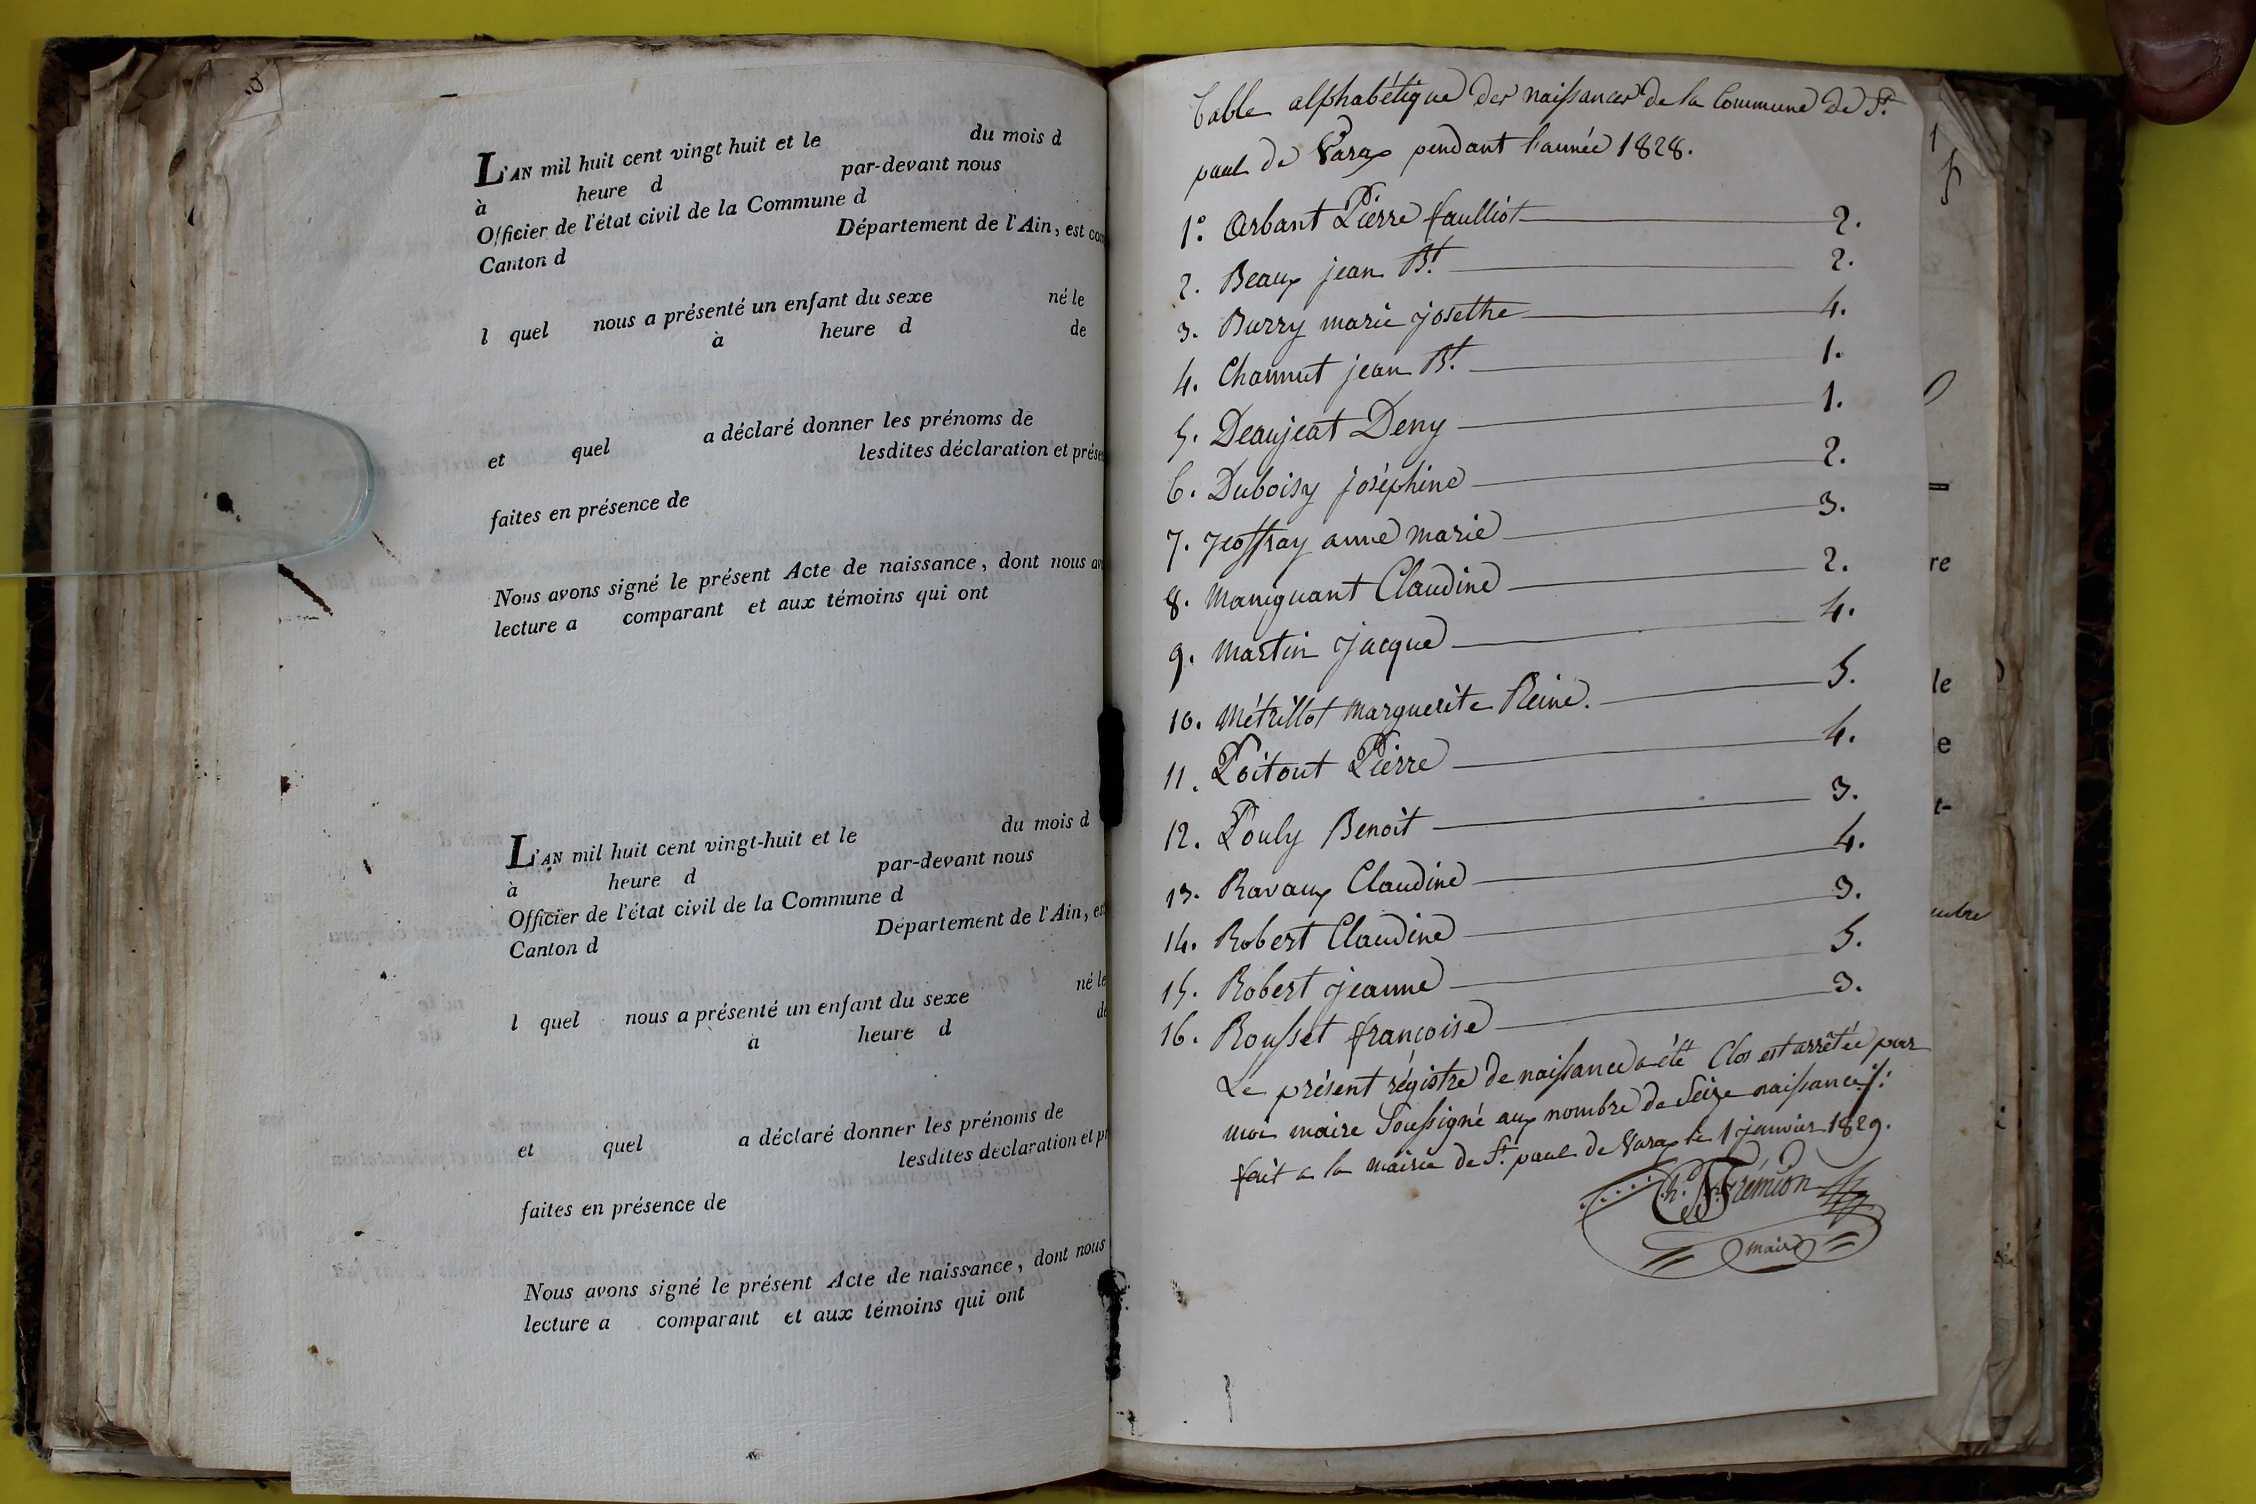 L'AN mil huit cent vingt huit et le du mois d
à heure d par-devant nous
Officier de l'état civil de la Commune d
Canton d Département de l'Ain, est
l quel nous a présenté un enfant du sexe né le
à heure d de
et quel a déclaré donner les prénoms de
lesdites déclaration et
faites en présence de
Nous avons signé le présent Acte de naissance, dont nous
lecture a comparant et aux témoins qui ont
L'AN mil huit cent vingt-huit et le du mois d
à heure d par-devant nous
Officier de l'état civil de la Commune d
Canton d Département de l'Ain,
l quel nous a présenté un enfant du sexe né le
à heure d
et quel a déclaré donner les prénoms de
lesdites déclaration et
faites en présence de
Nous avons signé le présent Acte de naissance, dont nous
lecture a comparant et aux témoins qui ont
Table alphabétique des naissances de la Commune de St
paul de Varax pendant l'année 1828.
1° Orbant Pierre faulliot 2.
2. Beaux jean Bt 2.
3. Burry marie josethe 4.
4. jean Bt 1.
5. Deaujeat Deny 1.
6. Duboisy joséphine 2.
7. jeoffray anne marie 3.
8. Claudine 2.
9. Martin jacque 4.
10. Métrillot Marguerite Reine. 5.
11. Poitout Pierre 4.
12. Pouly Benoit 3.
13. Ravaux Claudine 4.
14. Robert Claudine 3.
15. Robert jeanne 5.
16. Rousset françoise 3.
Le présent régistre de naissance a été Clos est arrêtée par
moi maire Soussigné aux nombre de Seize naissances
fait a la mairie de St paul de Varax le 1 janvier 1829.
Ch. Frémion
maire